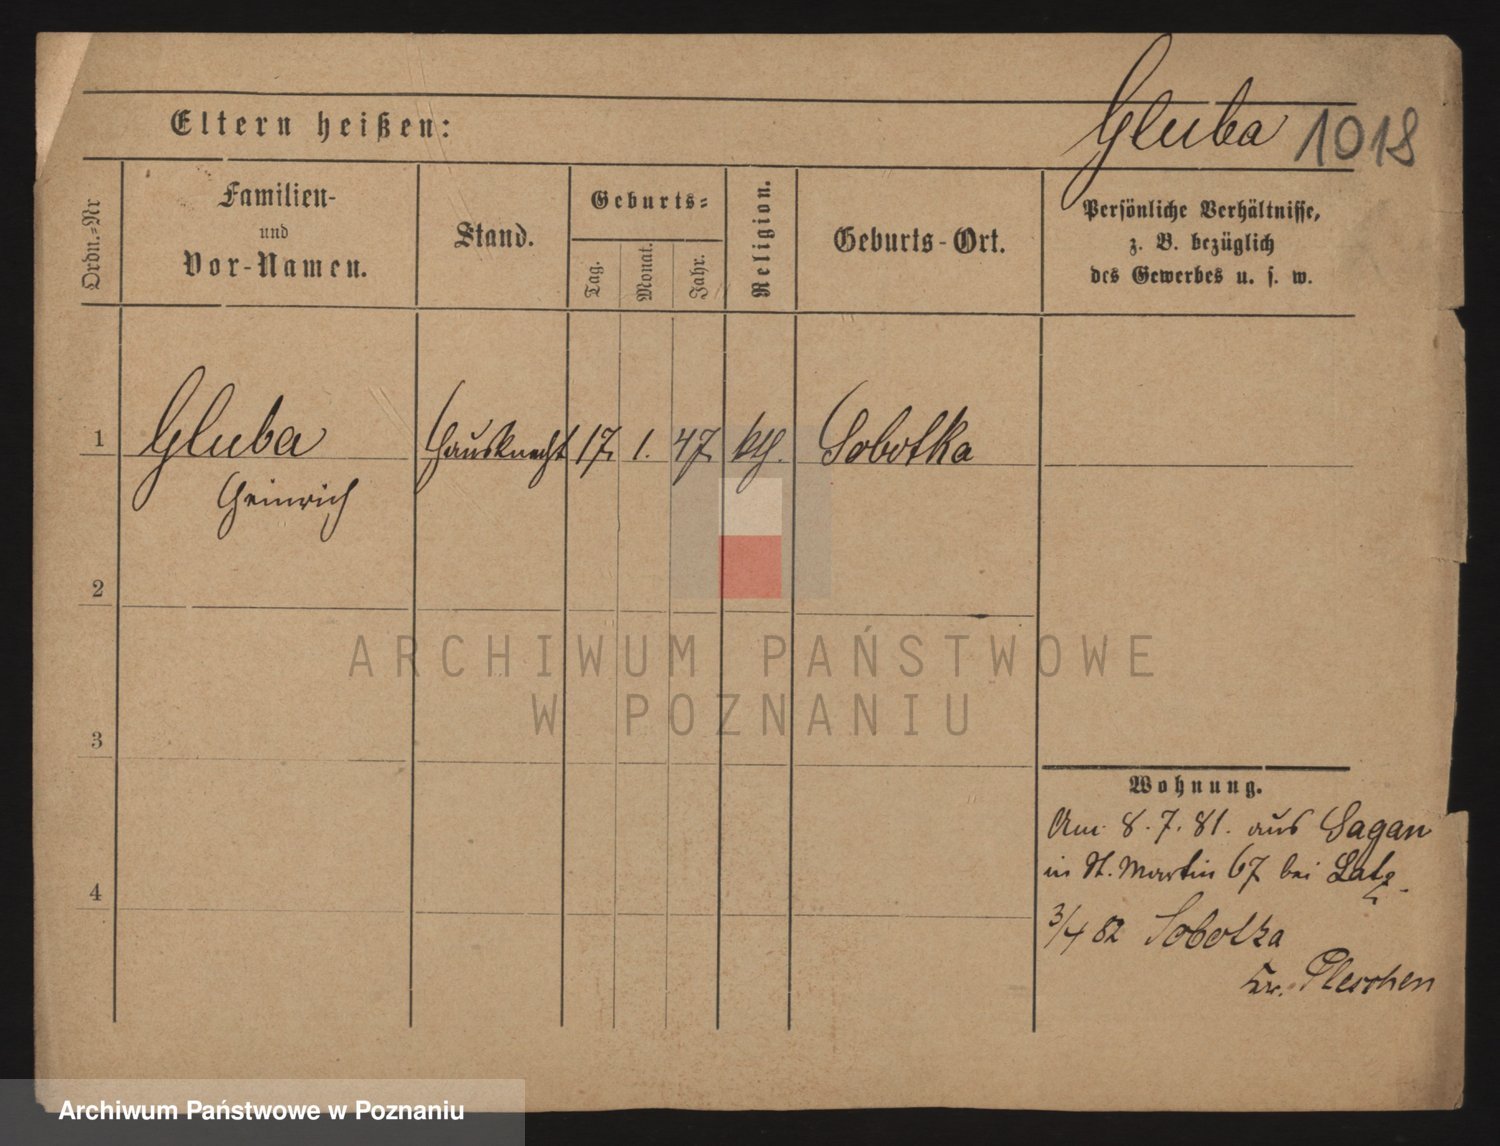 Eltern heißen:
Gluba 1018
Ordn.=Nr
Familien-
und
Vor-Namen.
Stand.
Geburts=
Tag.
Monat.
Jahr.
Religion.
Geburts-Ort.
Persönliche Verhältnisse,
z. B. bezüglich
des Gewerbes u. s. w.
1 Gluba Hausknecht 17. 1. 47. kth. Sobotka
Heinrich
2
3
4
Wohnung.
Am 8. 7. 81. aus Sagan
in St. Martin 67 bei Latz.
3/4 82 Sobotka
Kr. Pleschen
ARCHIWUM PAŃSTWOWE
W POZNANIU
Archiwum Państwowe w Poznaniu